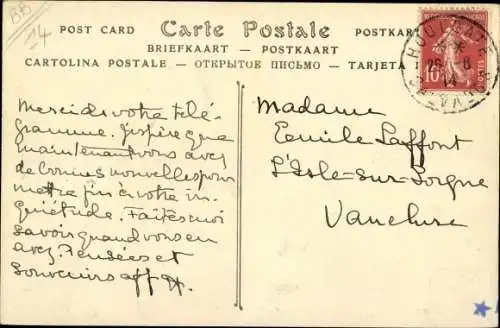 BB
14
POST CARD Carte Postale POSTKART
BRIEFKAART - POSTKAART
CARTOLINA POSTALE - ОТКРЫТОЕ ПИСЬМО - TARJETA
HOULGATE
25 - 8
14
CALVADOS
10
Merci de votre télé-
gramme. J'espère que
maintenant vous avez
de bonnes nouvelles pour
mettre fin à votre in-
quiétude. Faites moi
savoir quand vous en
avez. Pensées et
Souvenirs aff
Madame
Emile Laffont
L'Isle-sur-Sorgne
Vaucluse